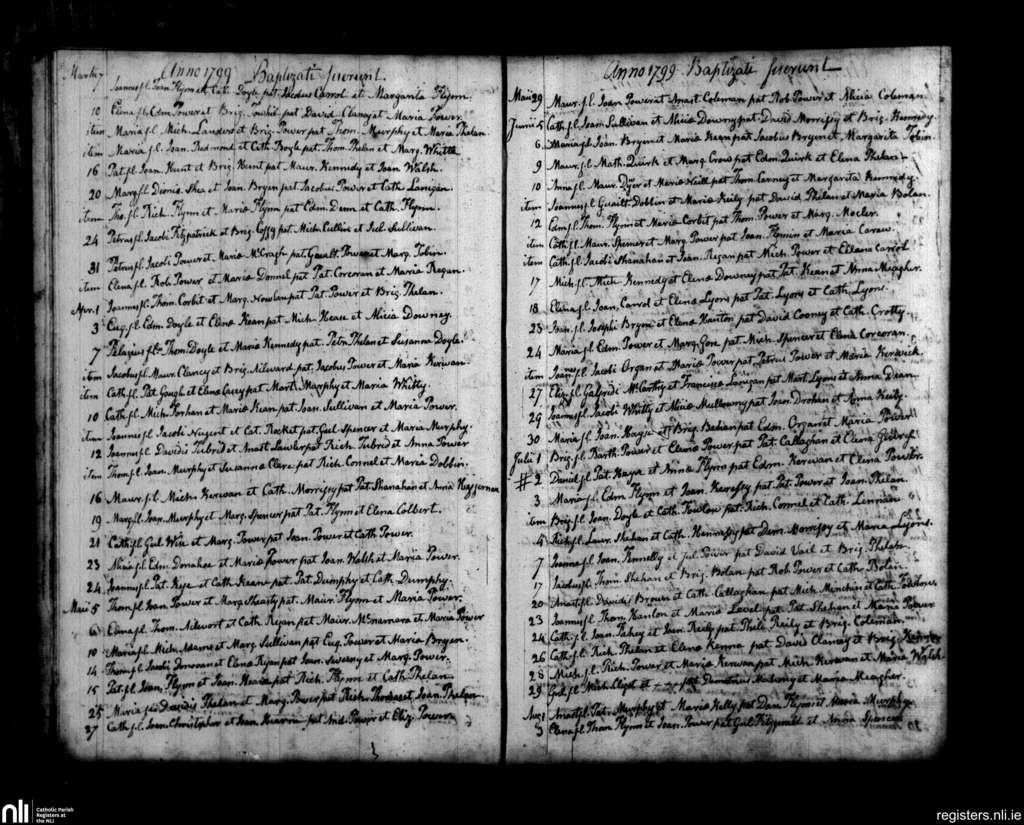 Anno 1799 Baptizati fuerunt.
Martii 7 Joannes fl. Joan. Flynn et Cat. Doyle pat. Jacobus Carrol et Margarita Flynn
10 Elena fl. Edm. Power et Brig. pat. David Clancy et Maria Power.
item Maria fl. Mich. Landers et Brig. Power pat. Thom. Murphy et Maria Phelan
item Maria fl. Joan. Redmond et Cath. Boyle pat. Thom. Phelan et Marg. Whittle
16 Pat. fl. Joan. Hunt et Brig. Hunt pat Maur. Kennedy et Joan. Walsh.
20 Marg. fl. Dionis Shea et Joan. Bryen pat Jacobus Power et Cath. Lanigan.
item Tho. fl. Rich. Flynn et Maria Flynn pat Edm. Denn et Cath. Flynn.
24 Petrus fl. Jacobi Fitzpatrick et Brig. Coffy pat Mich. Cullin et Jul. Sullivan.
31 Petrus fl. Jacobi Power et Maria McGrath pat. Gault. Power et Marg. Tobin.
item Elena fl. Rob. Power et Maria Donnel pat Pat. Corcoran et Maria Regan.
Apr. 1 Joannes fl. Thom. Corbit et Marg. Nowlan pat Pat. Power et Brig. Phelan.
3 Eug. fl. Edm. Doyle et Elena Kean pat Mich. Hease et Alicia Downey.
7 Pelagius fl. Thom. Doyle et Maria Kennedy pat. Petr. Phelan et Susanna Doyle.
item Jacobus fl. Maur. Clancy et Brig. Ailward pat. Jacobus Power et Maria Kerwan
item Cath. fl. Pat. Gough et Elena Casey pat Mart. Murphy et Maria Whitty.
10 Cath. fl. Mich. Forhan et Maria Kean pat. Joan. Sullivan et Maria Power.
item Joannes fl. Jacobi Nugent et Cat. Rocket pat. Gul. Spencer et Maria Murphy.
12 Joannes fl. Davidis Tubrid et Anast. Lawler pat Rich. Tubrid et Anna Power
item Thom. fl. Joan. Murphy et Susanna Clare pat Rich. Connel et Maria Dobbin.
16 Maur. fl. Mich. Kerwan et Cath. Morrissy pat Pat. Shanahan et Anna Heffernan
19 Marg. fl. Joan. Murphy et Marg. Spencer pat Pat. Flynn et Elena Colbert.
21 Cath. fl. Gul. Wise et Marg. Power pat Joan. Power et Cath Power.
23 Alicia fl. Edm. Donahoe et Maria Power pat Joan. Walsh et Maria Power.
24 Joannes fl. Pat. Keefe et Cath Keane pat Pat. Dumphy et Cath. Dumphy.
Maii 5 Thom. fl. Joan. Power et Marg. Sheasty pat. Maur. Flynn et Maria Power.
6 Elena fl. Thom. Ailwort et Cath. Ryan pat Maur. McNamara et Maria Power
10 Maria fl. Mich. Adams et Marg. Sullivan pat Eug. Power et Maria Bryen.
14 Thom. fl. Jacobi Donovan et Elena Ryan pat Joan. Sweeny et Marg. Power.
15 Pat. fl. Joan. Flynn et Joan. pat Rich. Flynn et Cath. Phelan
25 Maria fl. Davidis Phelan et Marg. Power pat Rich. Thomas et Joan. Phelan
27 Cath. fl. Joan. Christopher et Joan. Hearn pat Nich. Power et Eliz. Power
Anno 1799 Baptizati fuerunt
Maii 29 Maur. fl. Joan. Power et Anast. Coleman pat Rob. Power et Alicia Coleman
Junii 5 Cath. fl. Joan. Sullivan et Alicia Downy pat. David Morrissy et Brig. Kennedy.
6 Maria fl. Joan. Bryen et Maria Kean pat Jacobus Bryen et Margarita Tobin.
9 Maur. fl. Math. Quirk et Marg. Crow pat Edm. Quirk et Elena Phelan
10 Anna fl. Maur. Dyer et Maria Neill pat Thom. Carney et Margarita Kennedy.
item Joannes fl. Gualt. Dobbin et Maria Keily pat David Phelan et Maria Bolan.
12 Edm. fl. Thom. Flynn et Maria Corbit pat Thom. Power et Marg. Mocler.
item Cath. fl. Maur. Spencer et Marg. Power pat Joan. Flynn et Maria Carew.
item Cath. fl. Jacobi Shanahan et Joan. Regan pat Mich. Power et Elena Carrol
17 Mich. fl. Mich. Kennedy et Elena Downey pat Pat. Kean et Anna Meagher.
18 Elena fl. Joan. Carrol et Elena Lyons pat Pat. Lyons et Cath. Lyons.
23 Joan. fl. Josephi Bryen et Elena Hanton pat David Cooney et Cath. Crotty
24 Maria fl. Edm. Power et Marg. Gore pat Mich. Spencer et Elena Corcoran.
item Joannes fl. Jacobi Organ et Maria Power pat Petrus Power et Maria Kerwick.
27 Eliz. fl. Galfridi McCarthy et Francisca Lanigan pat Mart. Lyons et Anna Dean.
29 Joannes fl. Jacobi Whitty et Alicia Mullowny pat Joan. Drohan et Anna Keily.
30 Maria fl. Joan. Hayse et Brig. Behan pat Edm. Organ et Maria Power
Julii 1 Brig. fl. Barth. Power et Elena Power pat Pat. Callaghan et Elena Godfrey
# 2 David fl. Pat. Hayse et Anna Flynn pat Edm. Kerwan et Elena Power.
3 Maria fl. Edm. Flynn et Joan. Kerefsy pat Pat. Power et Joan. Phelan.
item Brig. fl. Joan. Doyle et Cath. Fowlow pat. Rich. Connel et Cath. Linnian
4 Rich. fl. Laur. Shehan et Cath. Hennessy pat Dan. Morrissy et Maria Lyons.
7 Joanna fl. Joan. Kennelly et Jul. Power pat David Vail et Brig. Phelan
17 Jacobus fl. Thom. Shehan et Brig. Bolan pat Rob. Power et Cath. Bolan
20 Anast. fl. Davidis Brown et Cath. Callaghan pat Mich. Minchin et Cath.
23 Joannes fl. Thom. Hanlon et Maria Lovel pat Pat. Shehan et Maria Power
24 Cath. fl. Joan. Fahey et Joan. Reily pat. Phili. Reily et Brig. Coleman.
26 Cath. fl. Rich. Phelan et Elena Kenna pat David Clancy et Brig.
28 Mich. fl. Rich. Power et Maria Kerwan pat Mich. Kerwan et Maria Walsh
29 Gul. fl. Mich. Lloyd et — pat Demetrius Mahony et Maria Meagher.
Aug. 1 Anast. fl. Pat. Murphy et Maria Kelly pat Dan. Flynn et Maria Murphy
3 Elena fl. Thom. Flynn et Joan. Power pat Gul. Fitzgerald et Anna Spencer
nli Catholic Parish
Registers at
the NLI
registers.nli.ie